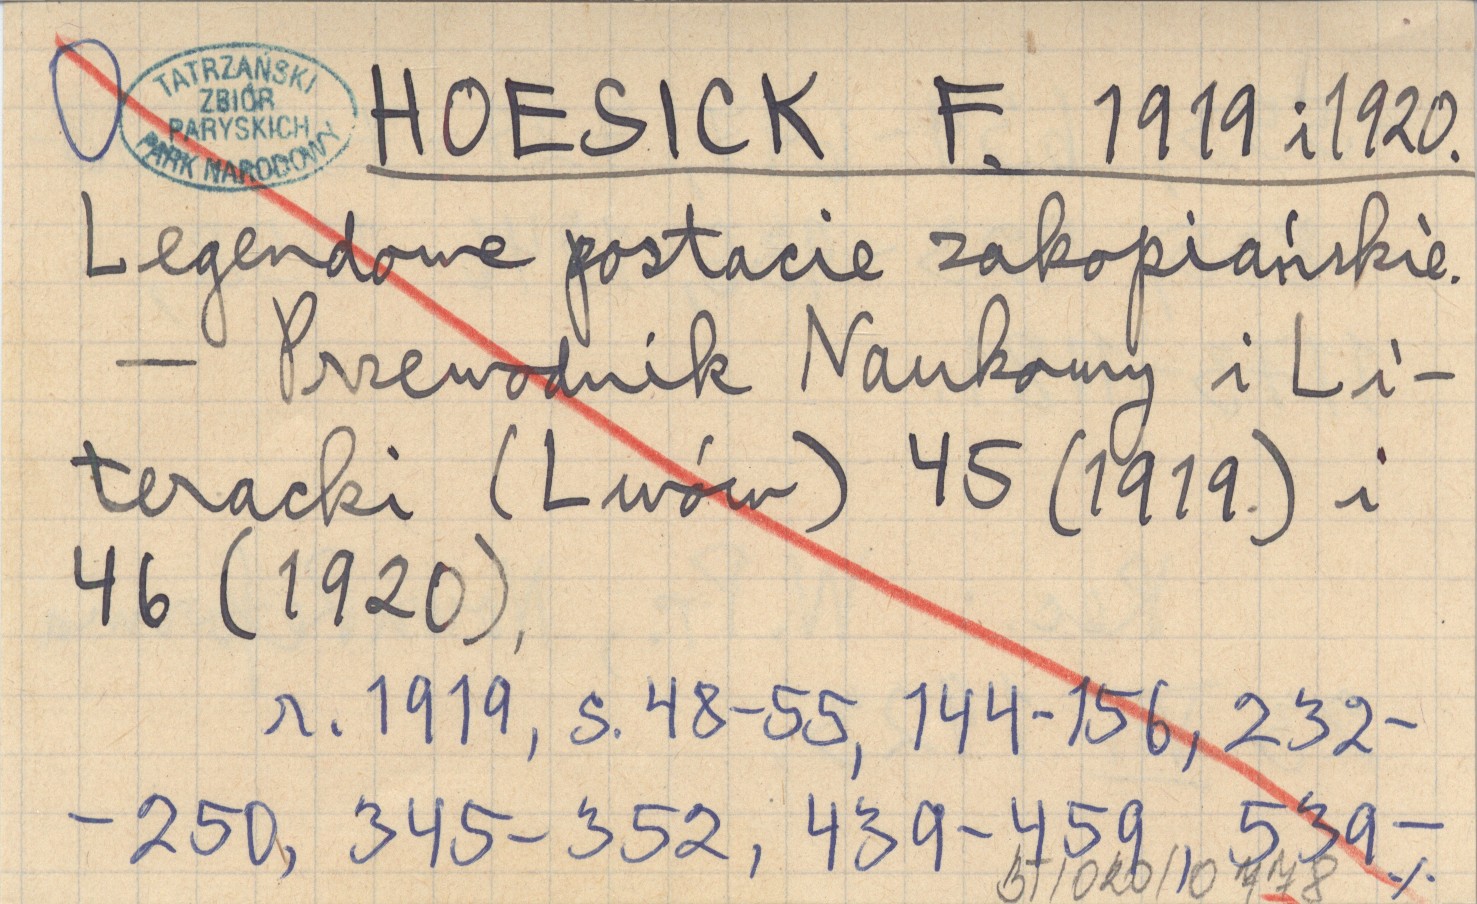 TATRZAŃSKI
ZBIÓR
PARYSKICH
PARK NARODOWY
HOESICK F. 1919 i 1920.
Legendowe postacie zakopiańskie.
— Przewodnik Naukowy i Li-
teracki (Lwów) 45 (1919.) i
46 (1920),
r. 1919, s. 48-55, 144-156, 232-
-250, 345-352, 439-459, 539-
./.